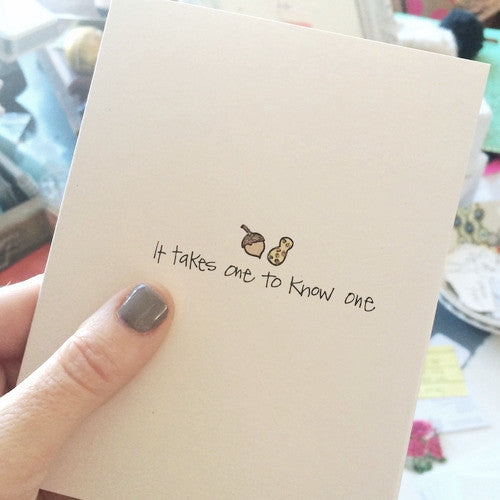 It takes one to know one